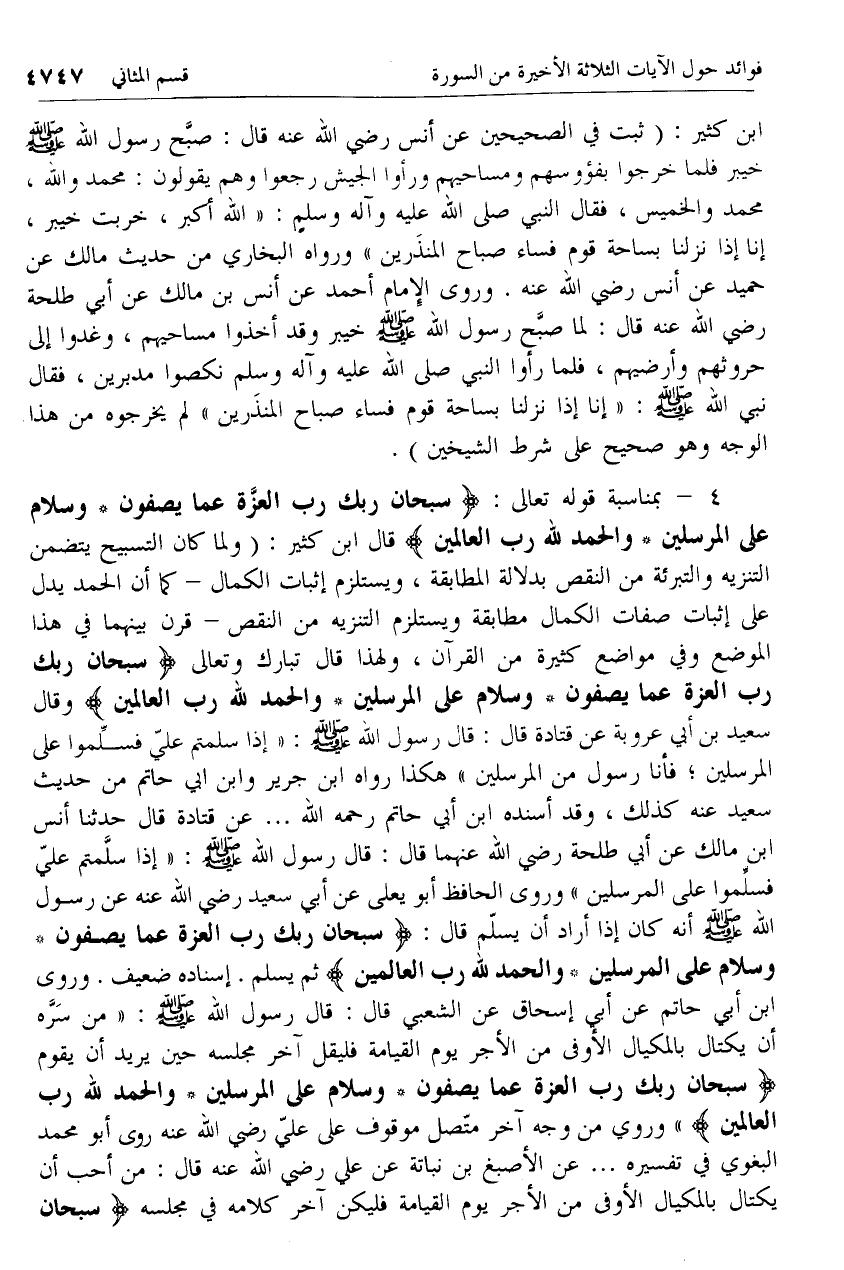 فوائد حول الآيات الثلاثة الأخيرة من السورة قسم المثاني ٤٧٤٧
ابن كثير : ( ثبت في الصحيحين عن أنس رضي الله عنه قال : صبَّح رسول الله ﷺ
خيبر فلما خرجوا بفؤوسهم ومساحيهم ورأوا الجيش رجعوا وهم يقولون : محمد والله ،
محمد والخميس ، فقال النبي صلى الله عليه وآله وسلم : « الله أكبر ، خربت خيبر ،
إنا إذا نزلنا بساحة قوم فساء صباح المنذَرين » ورواه البخاري من حديث مالك عن
حميد عن أنس رضي الله عنه . وروى الإمام أحمد عن أنس بن مالك عن أبي طلحة
رضي الله عنه قال : لما صبَّح رسول الله ﷺ خيبر وقد أخذوا مساحيهم ، وغدوا إلى
حروثهم وأرضيهم ، فلما رأوا النبي صلى الله عليه وآله وسلم نكصوا مدبرين ، فقال
نبي الله ﷺ : « إنا إذا نزلنا بساحة قوم فساء صباح المنذَرين » لم يخرجوه من هذا
الوجه وهو صحيح على شرط الشيخين ) .
٤ - بمناسبة قوله تعالى : ﴿ سبحان ربك رب العزَّة عما يصفون * وسلام
على المرسلين * والحمد لله رب العالمين ﴾ قال ابن كثير : ( ولما كان التسبيح يتضمن
التنزيه والتبرئة من النقص بدلالة المطابقة ، ويستلزم إثبات الكمال – كما أن الحمد يدل
على إثبات صفات الكمال مطابقة ويستلزم التنزيه من النقص – قرن بينهما في هذا
الموضع وفي مواضع كثيرة من القرآن ، ولهذا قال تبارك وتعالى ﴿ سبحان ربك
رب العزة عما يصفون * وسلام على المرسلين * والحمد لله رب العالمين ﴾ وقال
سعيد بن أبي عروبة عن قتادة قال : قال رسول الله ﷺ : « إذا سلمتم عليّ فسلّموا على
المرسلين ؛ فأنا رسول من المرسلين » هكذا رواه ابن جرير وابن ابي حاتم من حديث
سعيد عنه كذلك ، وقد أسنده ابن أبي حاتم رحمه الله ... عن قتادة قال حدثنا أنس
ابن مالك عن أبي طلحة رضي الله عنهما قال : قال رسول الله ﷺ : « إذا سلَّمتم عليّ
فسلِّموا على المرسلين » وروى الحافظ أبو يعلى عن أبي سعيد رضي الله عنه عن رسول
الله ﷺ أنه كان إذا أراد أن يسلّم قال : ﴿ سبحان ربك رب العزة عما يصفون *
وسلام على المرسلين * والحمد لله رب العالمين ﴾ ثم يسلم . إسناده ضعيف . وروى
ابن أبي حاتم عن أبي إسحاق عن الشعبي قال : قال رسول الله ﷺ : « من سَرَّه
أن يكتال بالمكيال الأوفى من الأجر يوم القيامة فليقل آخر مجلسه حين يريد أن يقوم
﴿ سبحان ربك رب العزة عما يصفون * وسلام على المرسلين * والحمد لله رب
العالمين ﴾ » وروي من وجه آخر متّصل موقوف على عليّ رضي الله عنه روى أبو محمد
البغوي في تفسيره ... عن الأصبغ بن نباتة عن علي رضي الله عنه قال : من أحب أن
يكتال بالمكيال الأوفى من الأجر يوم القيامة فليكن آخر كلامه في مجلسه ﴿ سبحان